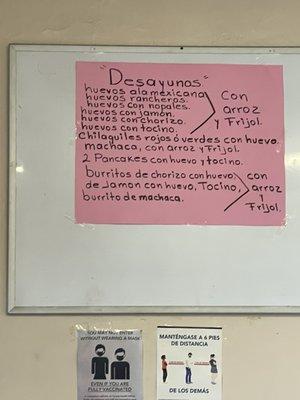 "Desayunos"
huevos ala mexicana
huevos rancheros.
huevos con nopales.
huevos con jamón.
huevos con chorizo.
huevos con tocino.
Con
arroz
y Frijol.
Chilaquiles rojos ó verdes con huevo
machaca, con arroz y Frijol.
2 Pancakes con huevo y tocino.
burritos de chorizo con huevo
de Jamon con huevo, Tocino,
burrito de machaca.
con
arroz
y
Frijol.
YOU MAY NOT ENTER
WITHOUT WEARING A MASK
EVEN IF YOU ARE
FULLY VACCINATED
MANTÉNGASE A 6 PIES
DE DISTANCIA
DE LOS DEMÁS